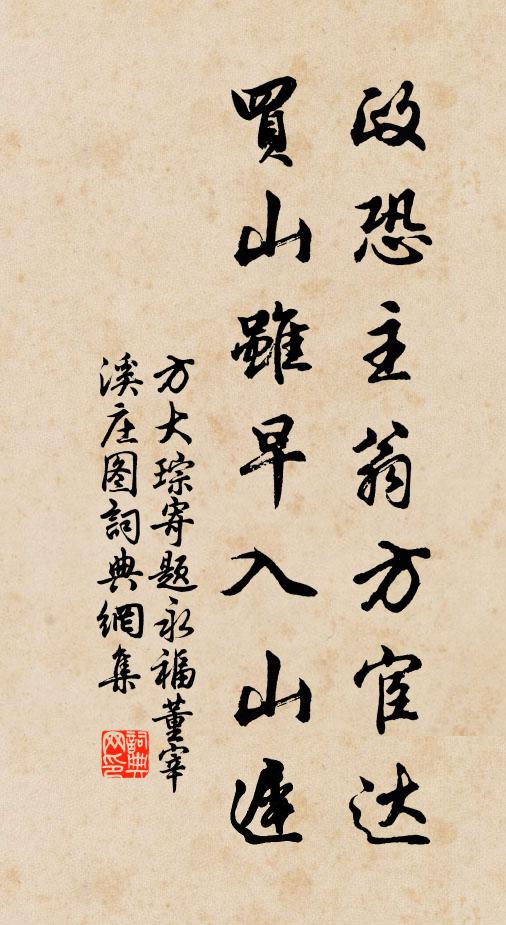 政恐主翁方宦达
買山雖早入山遲
方大琮寄题永福董宰
溪庄图詞典網集
詞典網印